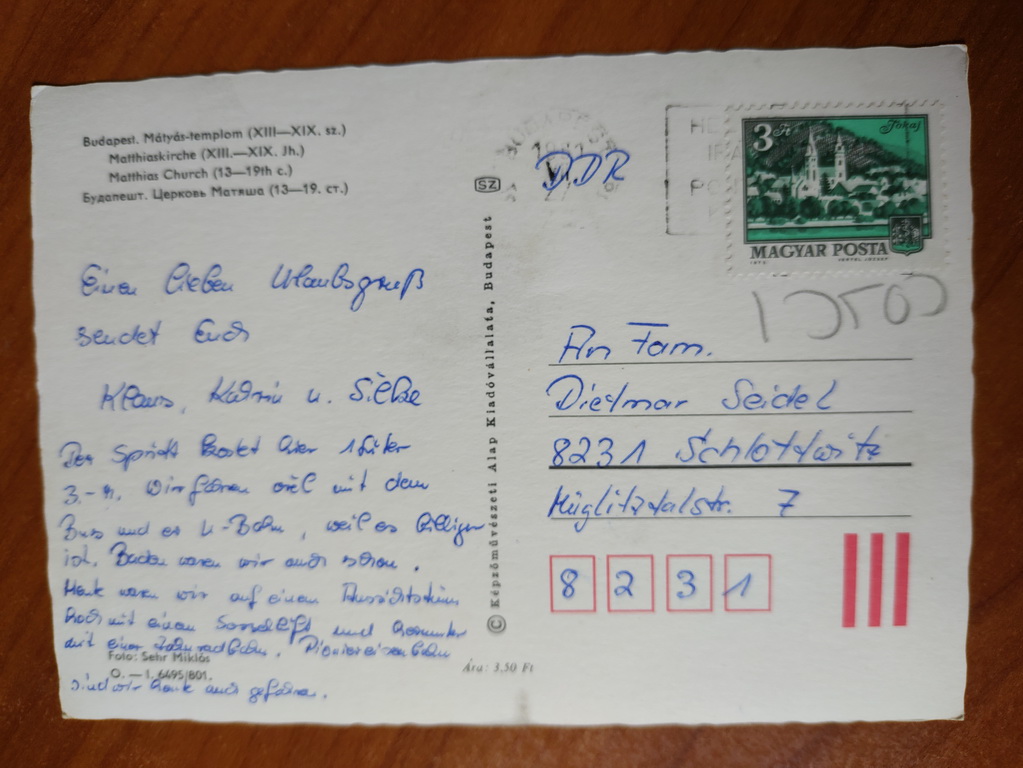 Budapest. Mátyás-templom (XIII—XIX. sz.)
Matthiaskirche (XIII.—XIX. Jh.)
Matthias Church (13—19th c.)
Будапешт. Церковь Матяша (13—19. ст.)
Einen lieben Urlaubsgruß
sendet Euch
Klaus, Katrin u. Silke
Der Sprit kostet hier 1 Liter
3.- M. Wir fahren viel mit dem
Bus und U-Bahn, weil es billiger
ist. Baden waren wir auch schon.
Heute waren wir auf einem Aussichtsturm
hoch mit einem Sessellift und herunter
mit einer Zahnradbahn. Pioniereisenbahn
sind wir heute auch gefahren.
Foto: Sehr Miklós
O. — I. 6495/801.
SZ
© Képzőművészeti Alap Kiadóvállalata, Budapest
Ára: 3,50 Ft
DDR
3 Ft
Tokaj
MAGYAR POSTA
An Fam.
Dietmar Seidel
8231 Schlottwitz
Müglitztalstr. 7
8 2 3 1